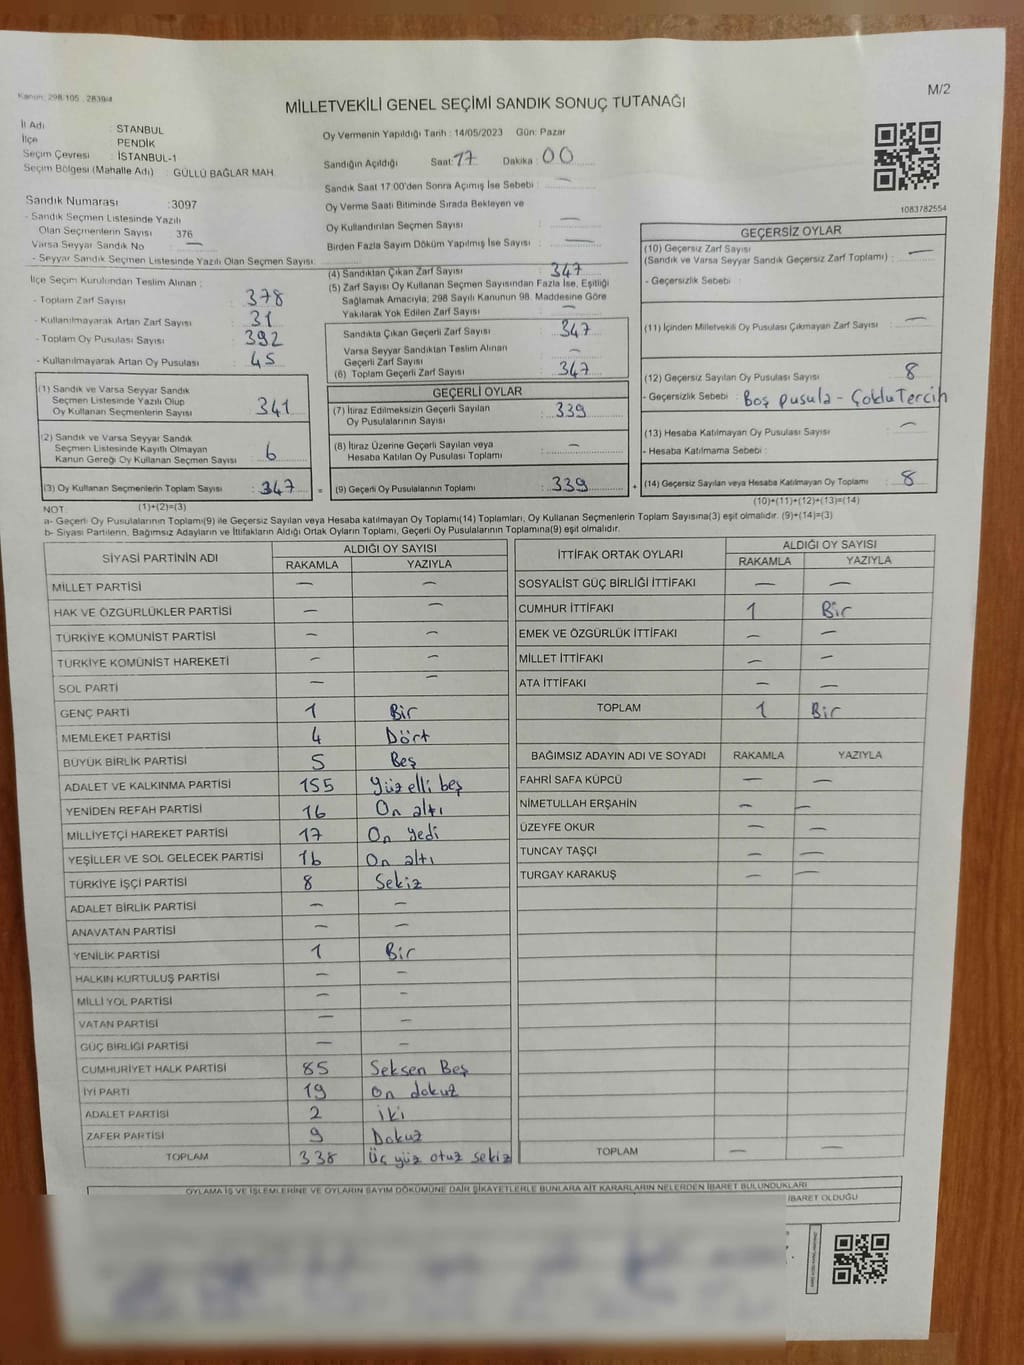 Kanun: 298.105 , 2839/4
M/2
MİLLETVEKİLİ GENEL SEÇİMİ SANDIK SONUÇ TUTANAĞI
İl Adı : STANBUL
İlçe PENDİK
Seçim Çevresi : İSTANBUL-1
Seçim Bölgesi (Mahalle Adı) : GÜLLÜ BAĞLAR MAH.
Oy Vermenin Yapıldığı Tarih : 14/05/2023 Gün: Pazar
Sandığın Açıldığı Saat: 17 Dakika : 00
Sandık Saat 17:00'den Sonra Açımış İse Sebebi : —
Oy Verme Saati Bitiminde Sırada Bekleyen ve
Oy Kullandırılan Seçmen Sayısı : —
Birden Fazla Sayım Döküm Yapılmış İse Sayısı : —
1083782554
Sandık Numarası :3097
- Sandık Seçmen Listesinde Yazılı
Olan Seçmenlerin Sayısı : 376
Varsa Seyyar Sandık No —
- Seyyar Sandık Seçmen Listesinde Yazılı Olan Seçmen Sayısı:
İlçe Seçim Kurulundan Teslim Alınan :
- Toplam Zarf Sayısı : 378
- Kullanılmayarak Artan Zarf Sayısı : 31
- Toplam Oy Pusulası Sayısı : 392
- Kullanılmayarak Artan Oy Pusulası : 45
(1) Sandık ve Varsa Seyyar Sandık
Seçmen Listesinde Yazılı Olup
Oy Kullanan Seçmenlerin Sayısı : 341
(2) Sandık ve Varsa Seyyar Sandık
Seçmen Listesinde Kayıtlı Olmayan
Kanun Gereği Oy Kullanan Seçmen Sayısı : 6
(3) Oy Kullanan Seçmenlerin Toplam Sayısı : 347 =
(4) Sandıktan Çıkan Zarf Sayısı : 347
(5) Zarf Sayısı Oy Kullanan Seçmen Sayısından Fazla İse, Eşitliği
Sağlamak Amacıyla; 298 Sayılı Kanunun 98. Maddesine Göre
Yakılarak Yok Edilen Zarf Sayısı : —
Sandıkta Çıkan Geçerli Zarf Sayısı : 347
Varsa Seyyar Sandıktan Teslim Alınan
Geçerli Zarf Sayısı : —
(6) Toplam Geçerli Zarf Sayısı : 347
GEÇERLİ OYLAR
(7) İtiraz Edilmeksizin Geçerli Sayılan
Oy Pusulalarının Sayısı : 339
(8) İtiraz Üzerine Geçerli Sayılan veya
Hesaba Katılan Oy Pusulası Toplamı : —
(9) Geçerli Oy Pusulalarının Toplamı : 339 +
GEÇERSİZ OYLAR
(10) Geçersiz Zarf Sayısı
(Sandık ve Varsa Seyyar Sandık Geçersiz Zarf Toplamı) : —
- Geçersizlik Sebebi :
(11) İçinden Milletvekili Oy Pusulası Çıkmayan Zarf Sayısı : —
(12) Geçersiz Sayılan Oy Pusulası Sayısı : 8
- Geçersizlik Sebebi : Boş pusula - Çoklu Tercih
(13) Hesaba Katılmayan Oy Pusulası Sayısı : —
- Hesaba Katılmama Sebebi :
(14) Geçersiz Sayılan veya Hesaba Katılmayan Oy Toplamı : 8
NOT: (1)+(2)=(3)
(10)+(11)+(12)+(13)=(14)
a- Geçerli Oy Pusulalarının Toplamı(9) ile Geçersiz Sayılan veya Hesaba katılmayan Oy Toplamı(14) Toplamları, Oy Kullanan Seçmenlerin Toplam Sayısına(3) eşit olmalıdır. (9)+(14)=(3)
b- Siyasi Partilerin, Bağımsız Adayların ve İttifakların Aldığı Ortak Oyların Toplamı, Geçerli Oy Pusulalarının Toplamına(9) eşit olmalıdır.
SİYASİ PARTİNİN ADI ALDIĞI OY SAYISI
RAKAMLA YAZIYLA
MİLLET PARTİSİ — —
HAK VE ÖZGÜRLÜKLER PARTİSİ — —
TÜRKİYE KOMÜNİST PARTİSİ — —
TÜRKİYE KOMÜNİST HAREKETİ — —
SOL PARTİ — —
GENÇ PARTİ 1 Bir
MEMLEKET PARTİSİ 4 Dört
BÜYÜK BİRLİK PARTİSİ 5 Beş
ADALET VE KALKINMA PARTİSİ 155 Yüz elli beş
YENİDEN REFAH PARTİSİ 16 On altı
MİLLİYETÇİ HAREKET PARTİSİ 17 On yedi
YEŞİLLER VE SOL GELECEK PARTİSİ 16 On altı
TÜRKİYE İŞÇİ PARTİSİ 8 Sekiz
ADALET BİRLİK PARTİSİ — —
ANAVATAN PARTİSİ — —
YENİLİK PARTİSİ 1 Bir
HALKIN KURTULUŞ PARTİSİ — —
MİLLİ YOL PARTİSİ — —
VATAN PARTİSİ — —
GÜÇ BİRLİĞİ PARTİSİ — —
CUMHURİYET HALK PARTİSİ 85 Seksen Beş
İYİ PARTİ 19 On dokuz
ADALET PARTİSİ 2 iki
ZAFER PARTİSİ 9 Dokuz
TOPLAM 338 Üç yüz otuz sekiz
İTTİFAK ORTAK OYLARI ALDIĞI OY SAYISI
RAKAMLA YAZIYLA
SOSYALİST GÜÇ BİRLİĞİ İTTİFAKI — —
CUMHUR İTTİFAKI 1 Bir
EMEK VE ÖZGÜRLÜK İTTİFAKI — —
MİLLET İTTİFAKI — —
ATA İTTİFAKI — —
TOPLAM 1 Bir
BAĞIMSIZ ADAYIN ADI VE SOYADI RAKAMLA YAZIYLA
FAHRİ SAFA KÜPCÜ — —
NİMETULLAH ERŞAHİN — —
ÜZEYFE OKUR — —
TUNCAY TAŞÇI — —
TURGAY KARAKUŞ — —
TOPLAM — —
OYLAMA İŞ VE İŞLEMLERİNE VE OYLARIN SAYIM DÖKÜMÜNE DAİR ŞİKAYETLERLE BUNLARA AİT KARARLARIN NELERDEN İBARET BULUNDUKLARI
İBARET OLDUĞU